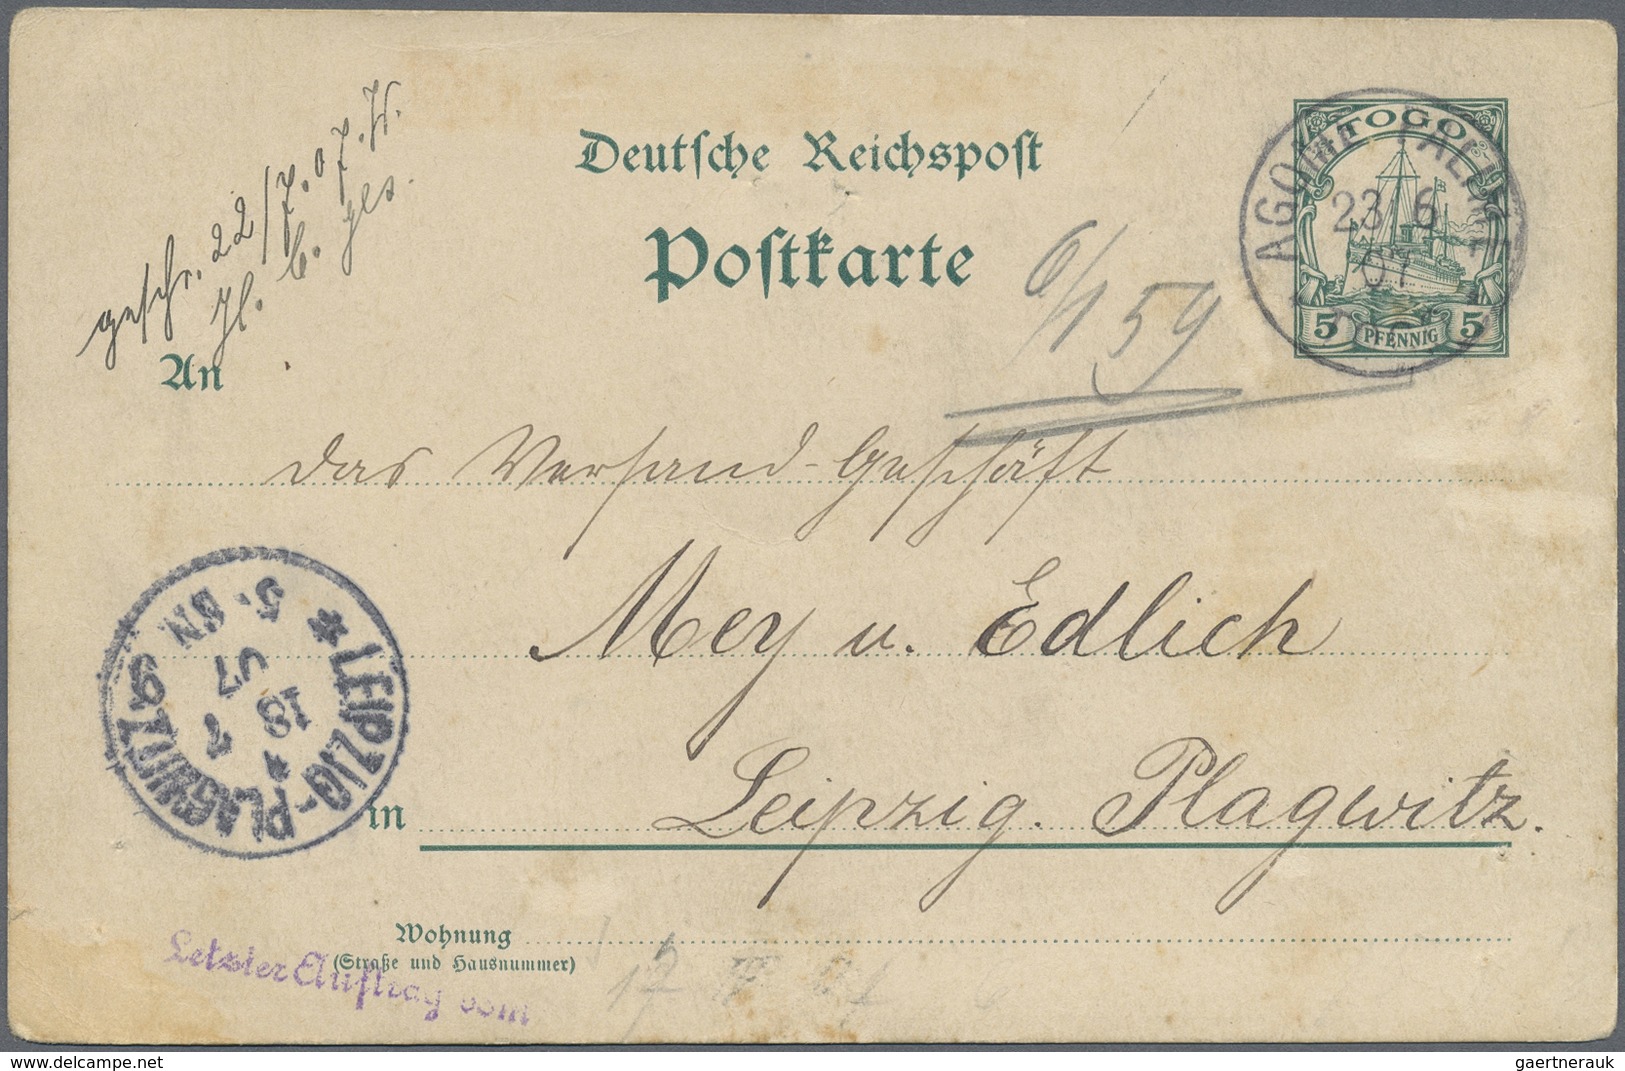 geschr. 22/7.07.W.
H. C. ges.
Deutsche Reichspost
Postkarte
TOGO
5 PFENNIG 5
AGOME PALIME
23 6
07
TOGO
6/1 59
An
das Versand-Geschäft
Mey u. Edlich
in Leipzig. Plagwitz.
* LEIPZIG-PLAGWITZ
5-6N
07
18 7
Wohnung
(Straße und Hausnummer)
Letzter Auftrag vom
17
delcampe.net
gaertnerauk